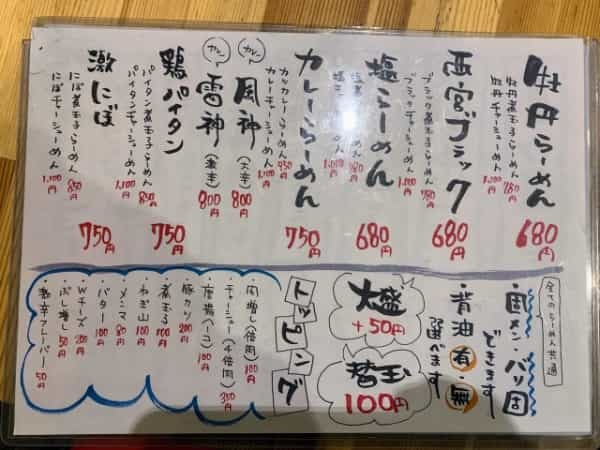 牡丹らーめん 680円
牡丹煮玉子らーめん 780円
牡丹チャーシューめん
西宮ブラック 680円
ブラック煮玉子らーめん 780円
ブラックチャーシューめん
塩らーめん 680円
カレーらーめん 750円
カツカレーらーめん 950円
カレーチャーシューめん 1,100円
風神(大辛) 800円
雷神(激辛) 800円
鶏パイタン 750円
パイタン煮玉子らーめん 850円
パイタンチャーシューめん 1,100円
激にぼ 750円
にぼ煮玉子らーめん 850円
にぼチャーシューめん 1,100円
全てのらーめん共通
・固メン・バリ固
できます
・背油 有・無
選べます
大盛
+50円
替玉
100円
トッピング
・肉増し(倍肉) 100円
・チャーシュー(4倍肉) 350円
・唐揚(1コ) 100円
・豚カツ 200円
・煮玉子 100円
・ねぎ山 100円
・メンマ 80円
・バター 100円
・Wチーズ 200円
・にぼし増し 50円
・激辛フレーバー 50円